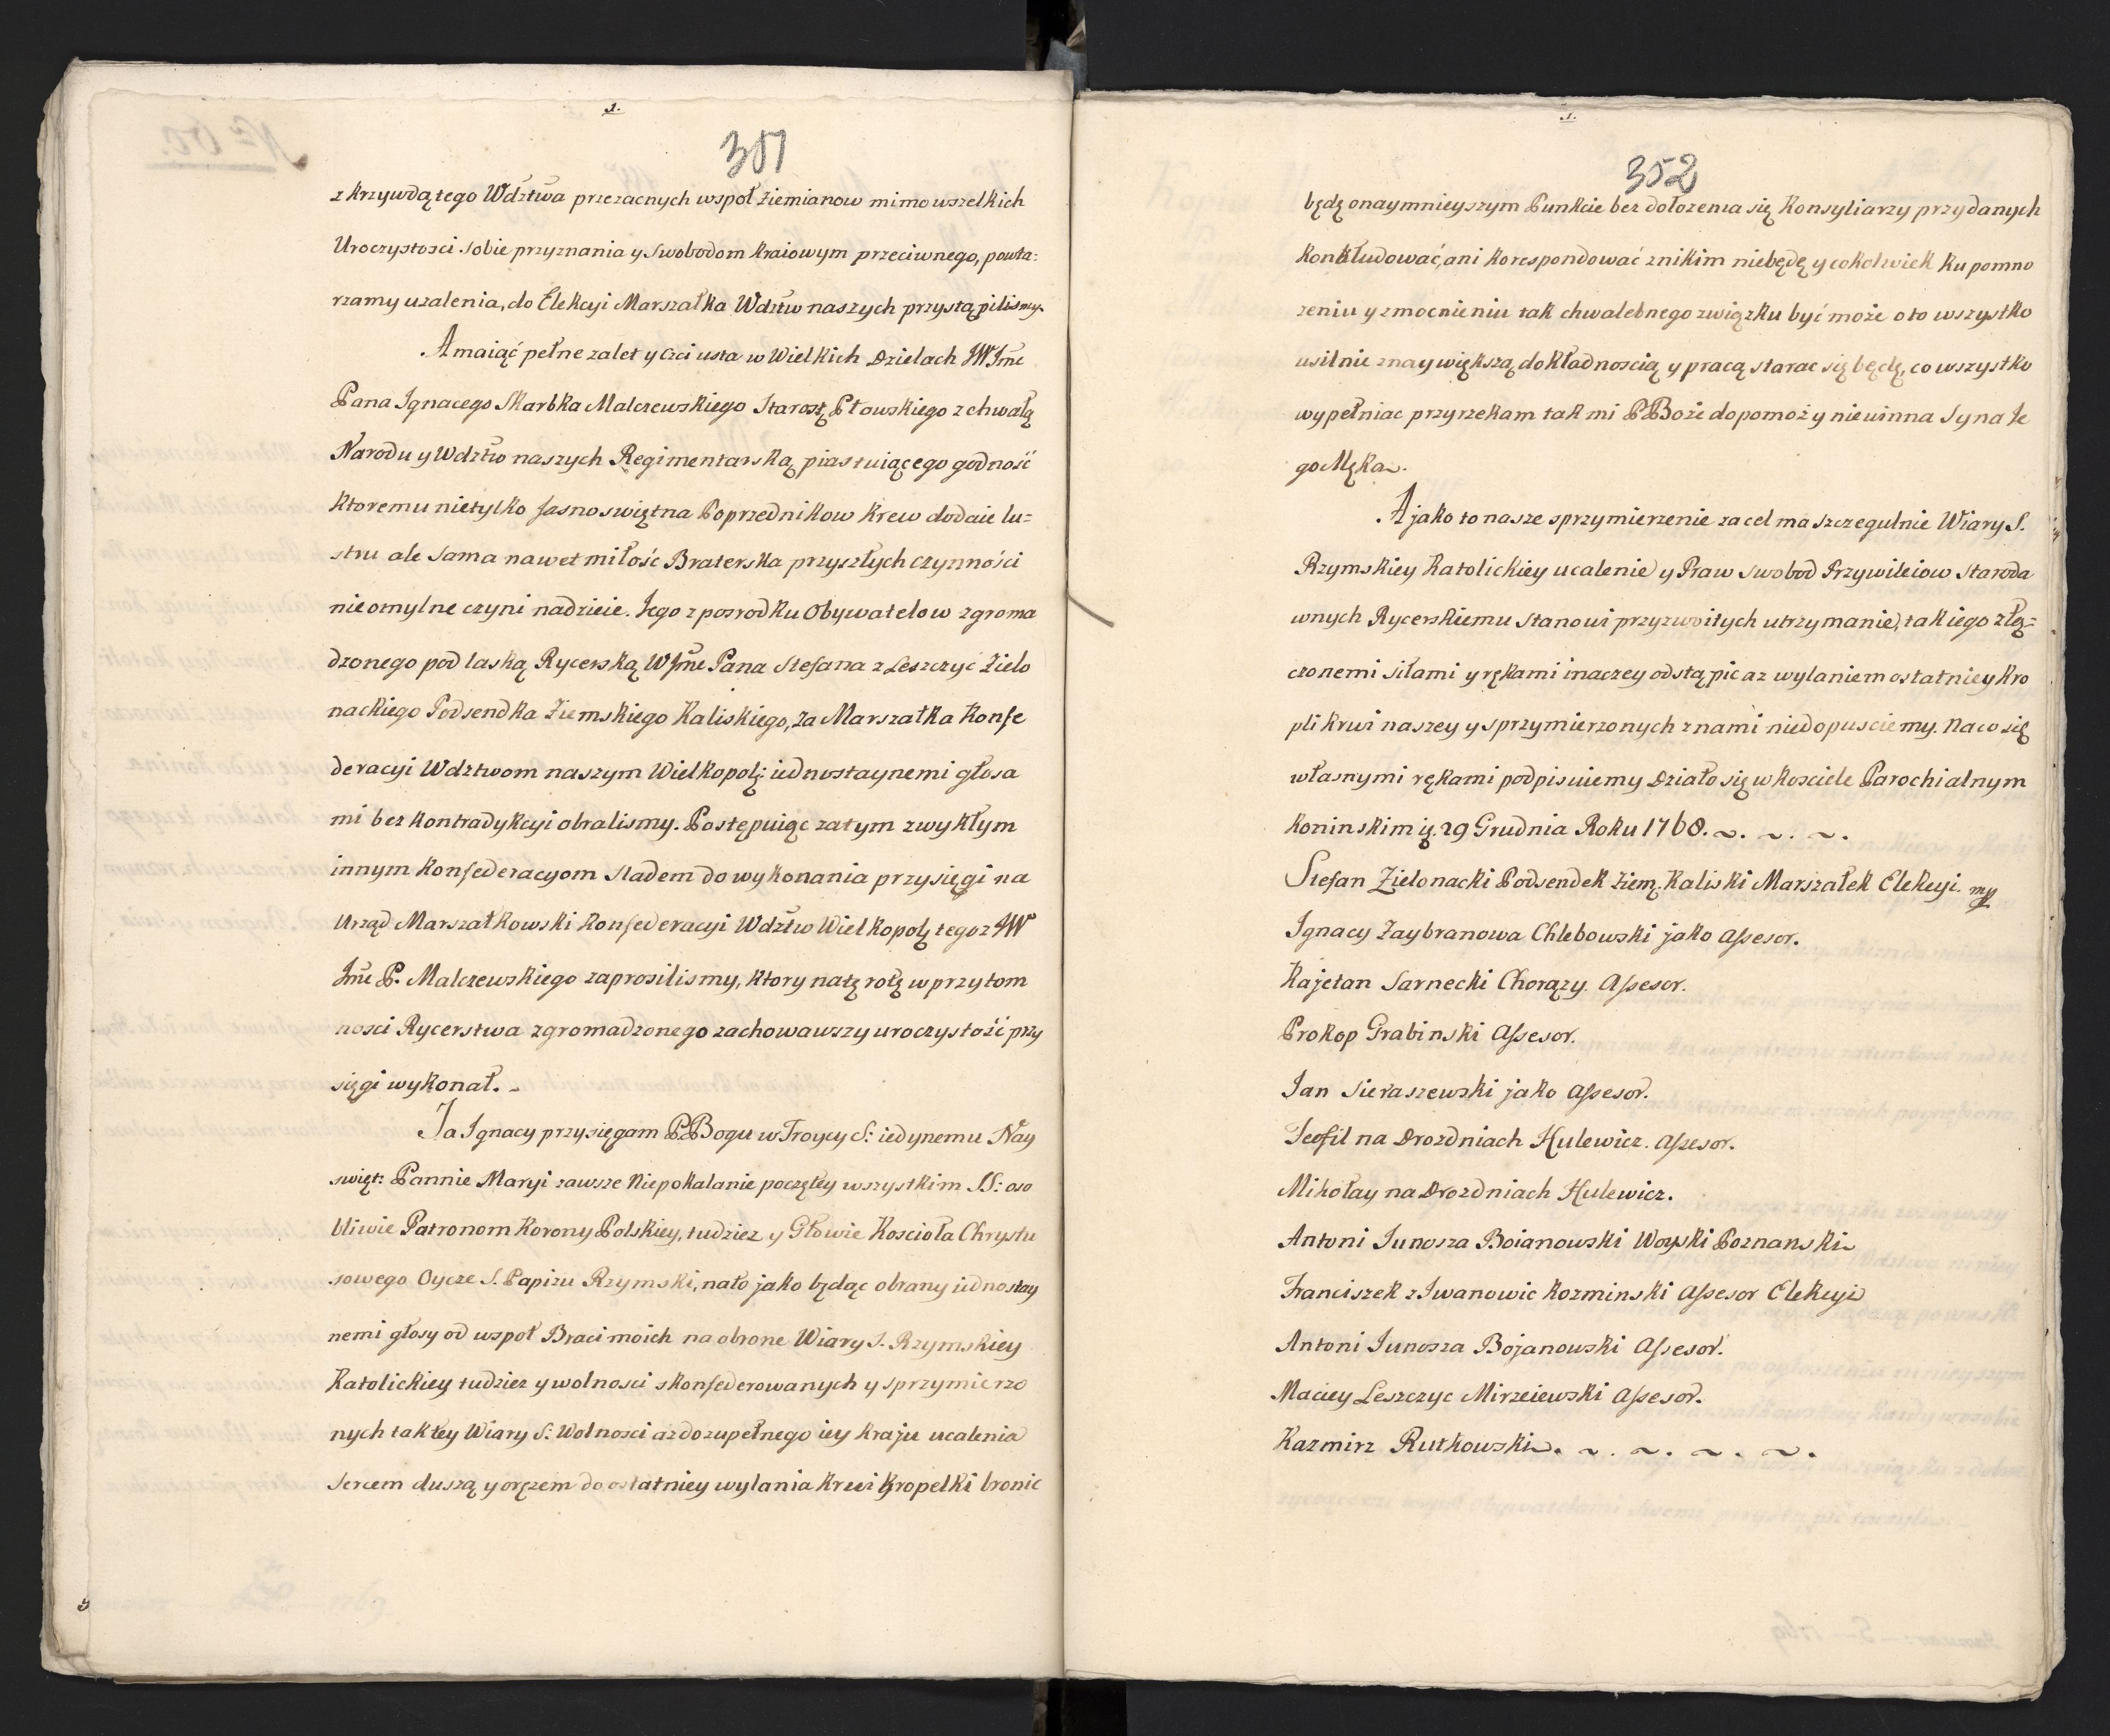 1.
351
z krzywdą tego Wdztwa przezacnych wspoł ziemianow mimo wszelkich
Uroczystosci sobie przyznania y swobodom kraiowym przeciwnego, powta:
rzamy uzalenia, do Elekcyi Marszałka Wdztw naszych przystąpilismy.
A maiąć pełne zalet y czci usta w Wielkich Dziełach JW Jmć
Pana Ignacego Skarbka Malczewskiego Starostę Płowskiego z chwałą
Narodu y Wdztw naszych Regimentarską piastuiącego godność
ktoremu nietylko Jasnoswiętna Poprzednikow krew dodaie lu=
stru ale sama nawet miłość Braterska przyszłych czynności
nieomylne czyni nadzieie. Jego z posrodku Obywatelow zgroma
dzonego pod laską Rycerską WJme Pana Stefana z Leszczyć Zielo
nackiego Podsendka Ziemskiego Kaliskiego, za Marszałka Konfe
deracyi Wdztwom naszym Wielkopolą: iednostaynemi głosa
mi bez kontradykcyi obralismy. Postępuiąc zatym zwykłym
innym konfederacyom sladem do wykonania przysięgi na
Urząd Marszałkowski konfederacyi Wdztw Wielkopolą tegoz JW
Jme P. Malczewskiego zaprosilismy, ktory natę rotę w przytom
nosci Rycerstwa zgromadzonego zachowawszy uroczystość przy
sięgi wykonał.
Ja Ignacy przysięgam P. Bogu w Troycy S: iedynemu Nay
swięt: Pannie Maryi zawsze Niepokalanie poczętey wszystkim SS: oso
bliwie Patronom Korony Polskiey, tudziez y Głowie Koscioła Chrystu
sowego Oycze S. Papizu Rzymski, nato jako będąc obrany iednostay
nemi głosy od wspoł Braci moich na obrone Wiary S. Rzymskiey
Katolickiey tudziez y wolnosci skonfederowanych y sprzymierzo
nych tak tey Wiary S. Wolnosci az do zupełnego iey kraju ucalenia
Sercem duszą y orężem do ostatniey wylania krwi kropelki bronic
1.
352
będę o naymnieyszym Punkcie bez dołozenia się Konsyliarzy przydanych
konkludować, ani korespondować z nikim niebędę y cokolwiek ku pomno
zeniu y zmocnieniu tak chwalebnego związku być może o to wszystko
usilnie z naywiększą dokładnoscią y pracą starac się będę, co wszystko
wypełniac przyrzekam tak mi P. Boże dopomoż y niewinna Syna Je
go Męka.
A jako to nasze sprzymierzenie za cel ma szczegulnie Wiary S.
Rzymskiey Katolickiey ucalenie y Praw swobod Przywileiow Staroda
wnych Rycerskiemu Stanowi przyzwoitych utrzymanie, tak iego złą=
czonemi siłami y rękami inaczey odstąpic az wylaniem ostatniey kro
pli krwi naszey y sprzymierzonych z nami niedopusciemy. Na co się
własnymi rękami podpisuiemy Działo się w kosciele Parochialnym
koninskim ig. 29 Grudnia Roku 1768. ~. ~. ~.
Stefan Zielonacki Podsendek Ziemą. Kaliski Marszałek Elekcyi. mp
Ignacy Zaybranowa Chlebowski jako Assesor.
Kajetan Sarnecki Chorązy. Assesor.
Prokop Grabinski Assesor.
Jan Sieraszewski jako Assesor.
Teofil na Drozdniach Hulewicz. Assesor.
Mikołay na Drozdniach Hulewicz.
Antoni Junosza Boianowski Woyski Poznanski
Franciszek z Iwanowic Kozminski Assesor Elekcyi
Antoni Junosza Bojanowski Assesor.
Maciey Leszczyc Mirzeiewski Assesor.
Kazmirz Rutkowski. ~. ~. ~. ~.